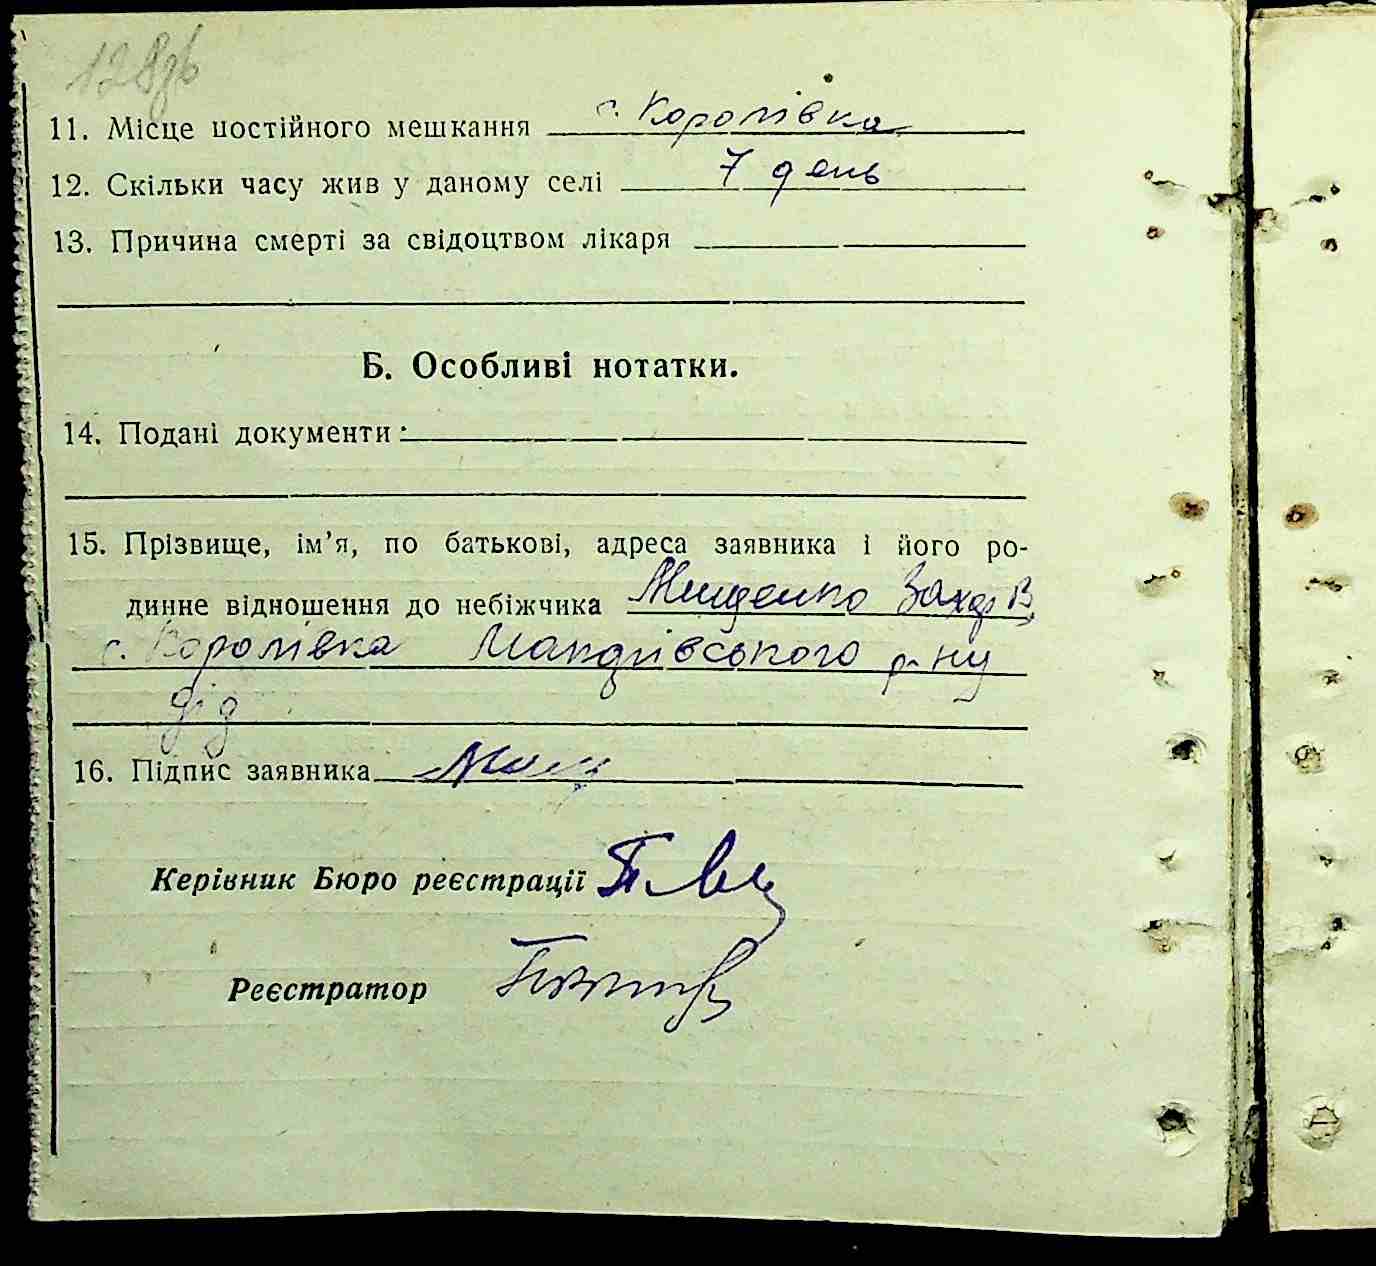 128зв
11. Місце постійного мешкання с. Королівка
12. Скільки часу жив у даному селі 7 день
13. Причина смерті за свідоцтвом лікаря
Б. Особливі нотатки.
14. Подані документи:
15. Прізвище, ім’я, по батькові, адреса заявника і його ро-
динне відношення до небіжчика Мищенко Захар В.
с. Королівка Макарівського р-ну
дід
16. Підпис заявника Мищ
Керівник Бюро реєстрації
Реєстратор